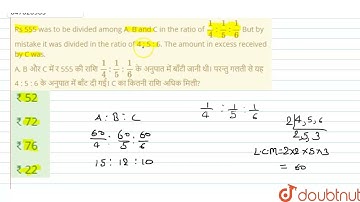 Rs 555 was to be divided among A, B and C in the ratio of 1/4 : 1/5 : 1/6 But by
mistake it was divided in the ratio of 4 : 5 : 6. The amount in excess received
by C was.
A, B और C में ₹ 555 की राशि 1/4 : 1/5 : 1/6 के अनुपात में बाँटी जानी थी। परन्तु गलती से यह
4 : 5 : 6 के अनुपात में बाँट दी गई। C का कितनी राशि अधिक मिली?
₹ 52
₹ 72
₹ 76
₹ 22
A : B : C
60/4 : 60/5 : 60/6
15 : 12 : 10
1/4 : 1/5 : 1/6
2 | 4, 5, 6
2, 5, 3
L.C.M = 2×2×5×3
= 60
doubtnut